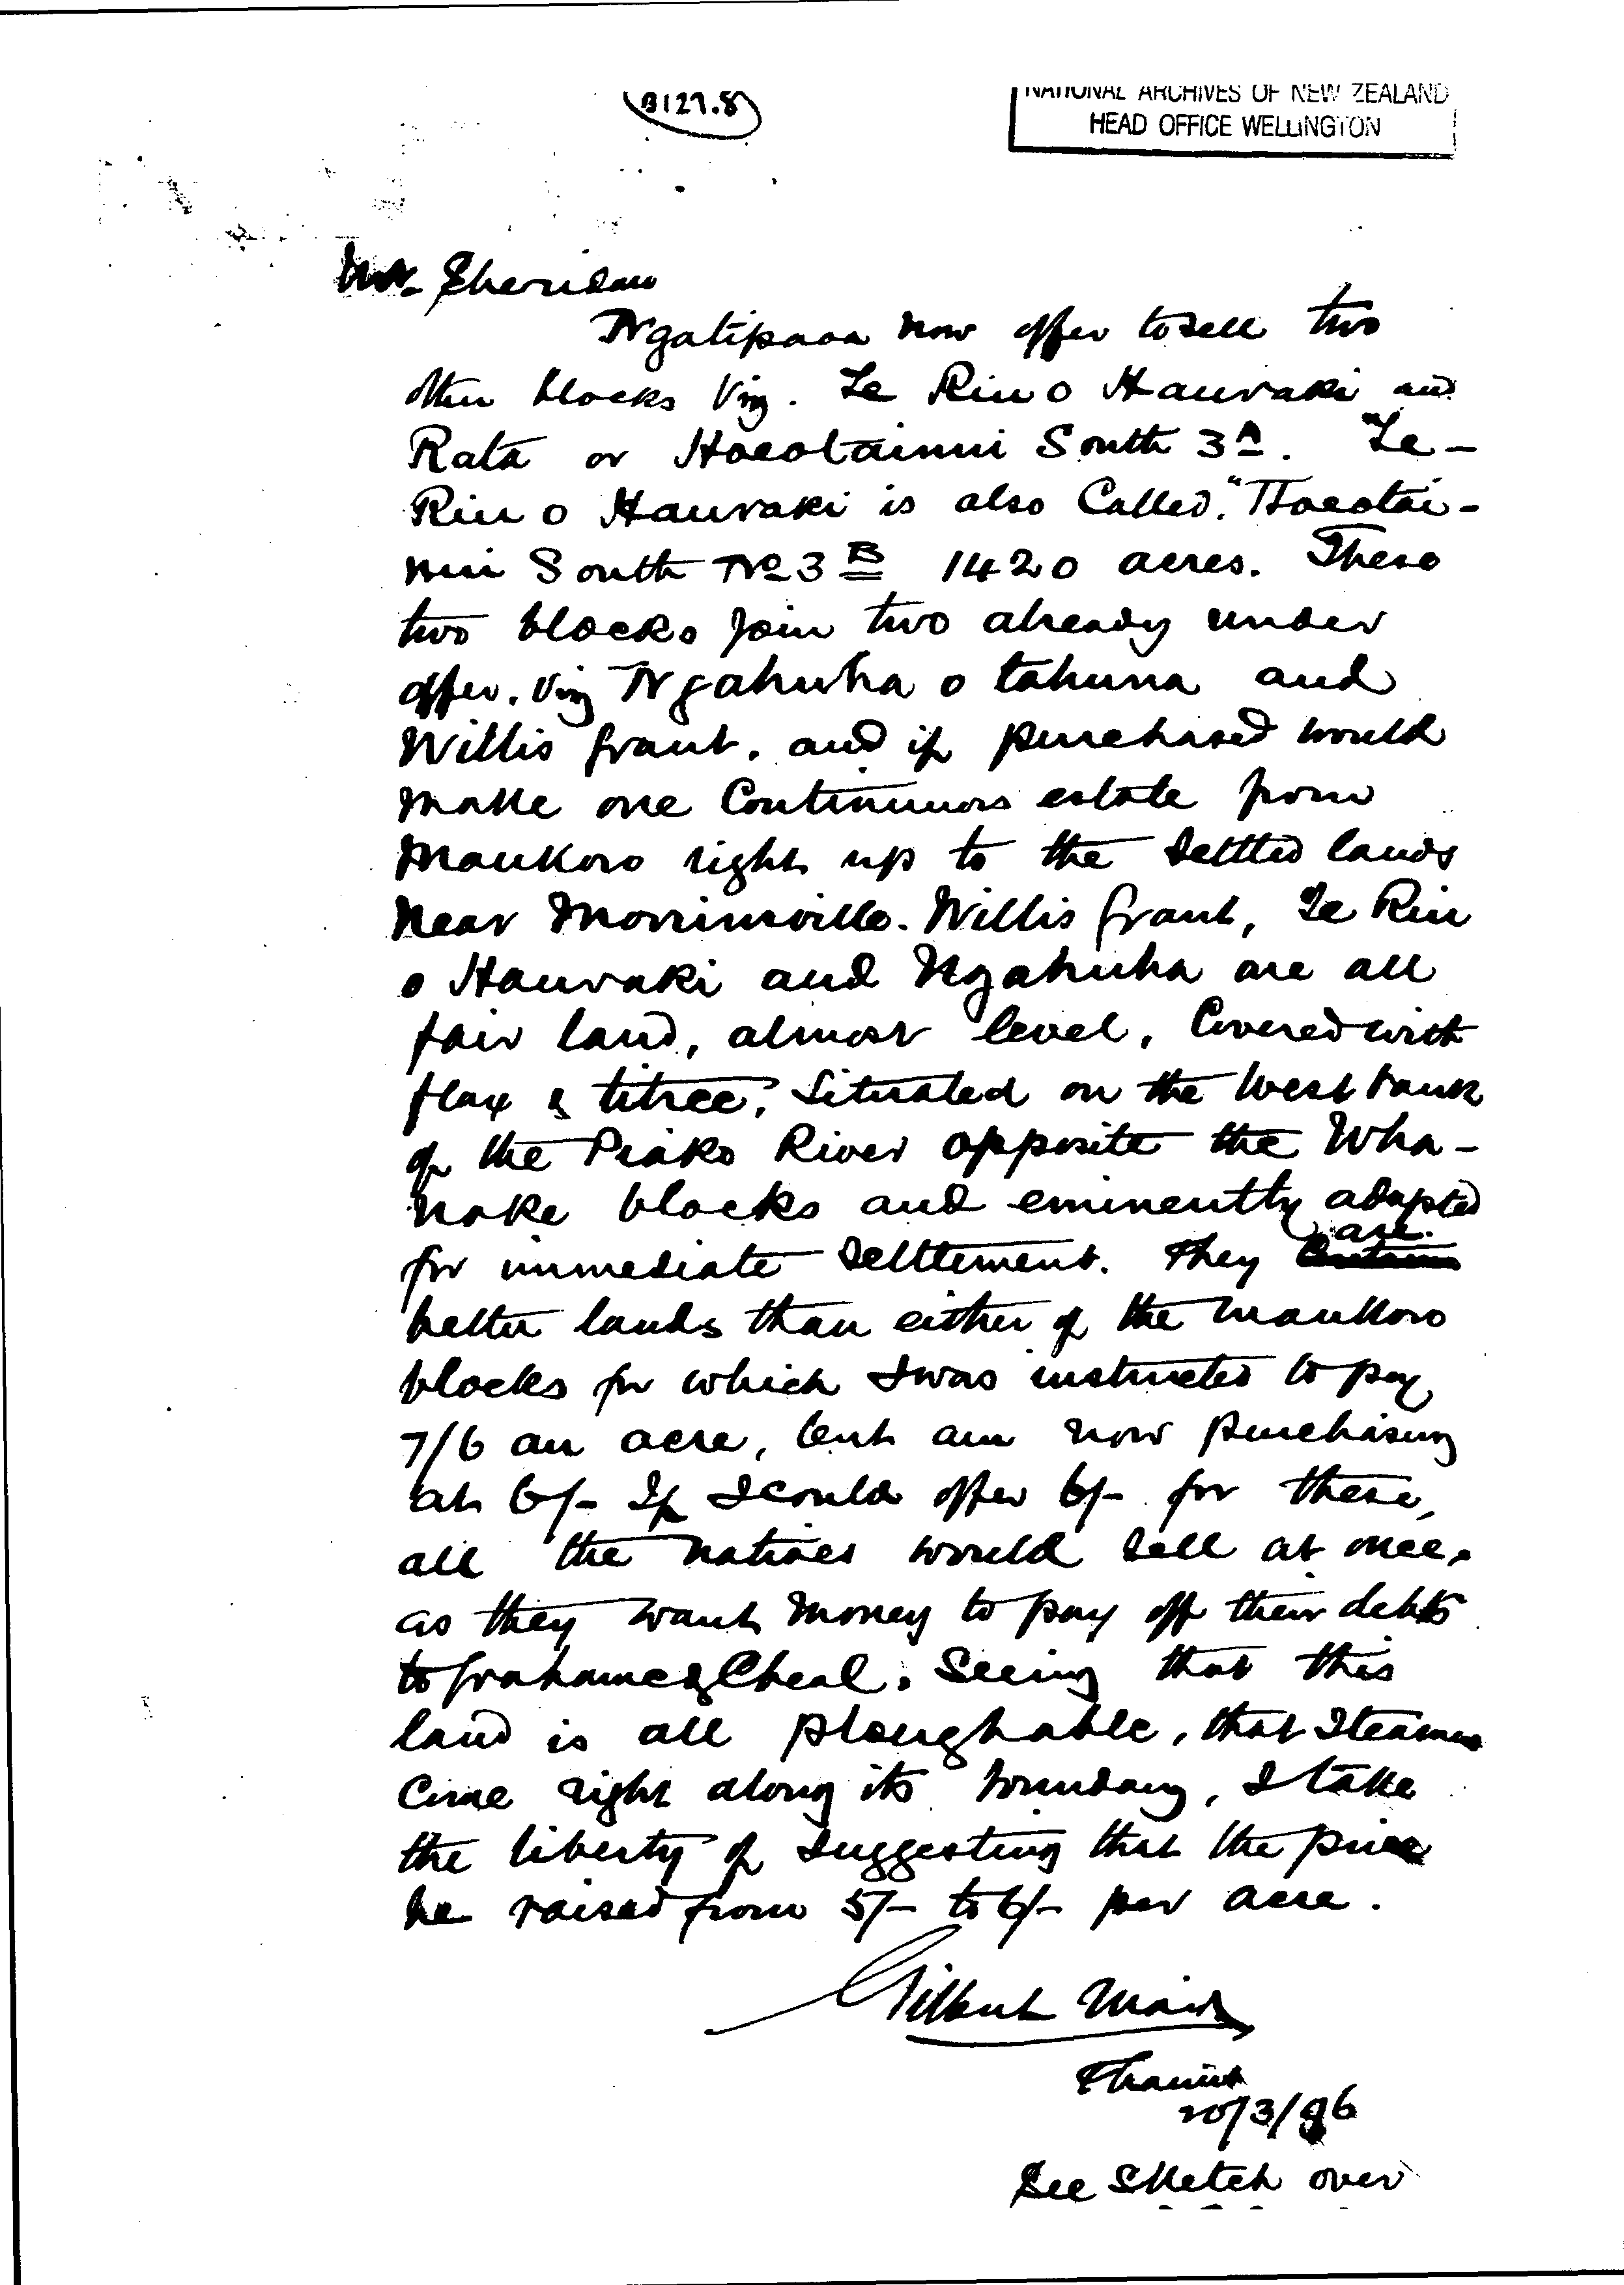 B127.8
NATIONAL ARCHIVES OF NEW ZEALAND
HEAD OFFICE WELLINGTON
Mr. Sheridan
Ngatipaoa now offer to sell two
other blocks Viz. Te Riu o Hauraki and
Rata or Hoeotainui South 3A. Te-
Riu o Hauraki is also Called "Hoeotai-
nui South No 3B 1420 acres. These
two blocks join two already under
offer. Viz Ngahuha o tahuna and
Willis grant, and if purchased would
make one Continuous estate from
Maukoro right up to the Settled lands
near Morrinsville. Willis grant, Te Riu
o Hauraki and Ngahuha are all
fair land, almost level, Covered with
flax & titree, Situated on the West bank
of the Piako River opposite the Wha-
nake blocks and eminently adapted
for immediate Settlement. They are
better lands than either of the Maukoro
blocks for which I was instructed to pay
7/6 an acre, but am now purchasing
at 6/- If I could offer 6/- for these,
all the natives would sell at once,
as they want money to pay off their debts
to Grahame & Cheal. Seeing that this
land is all ploughable, that Steamers
Come right along its boundary, I take
the liberty of Suggesting that the price
be raised from 5/- to 6/- per acre.
Gilbert Mair
Thames
20/3/96
See Sketch over